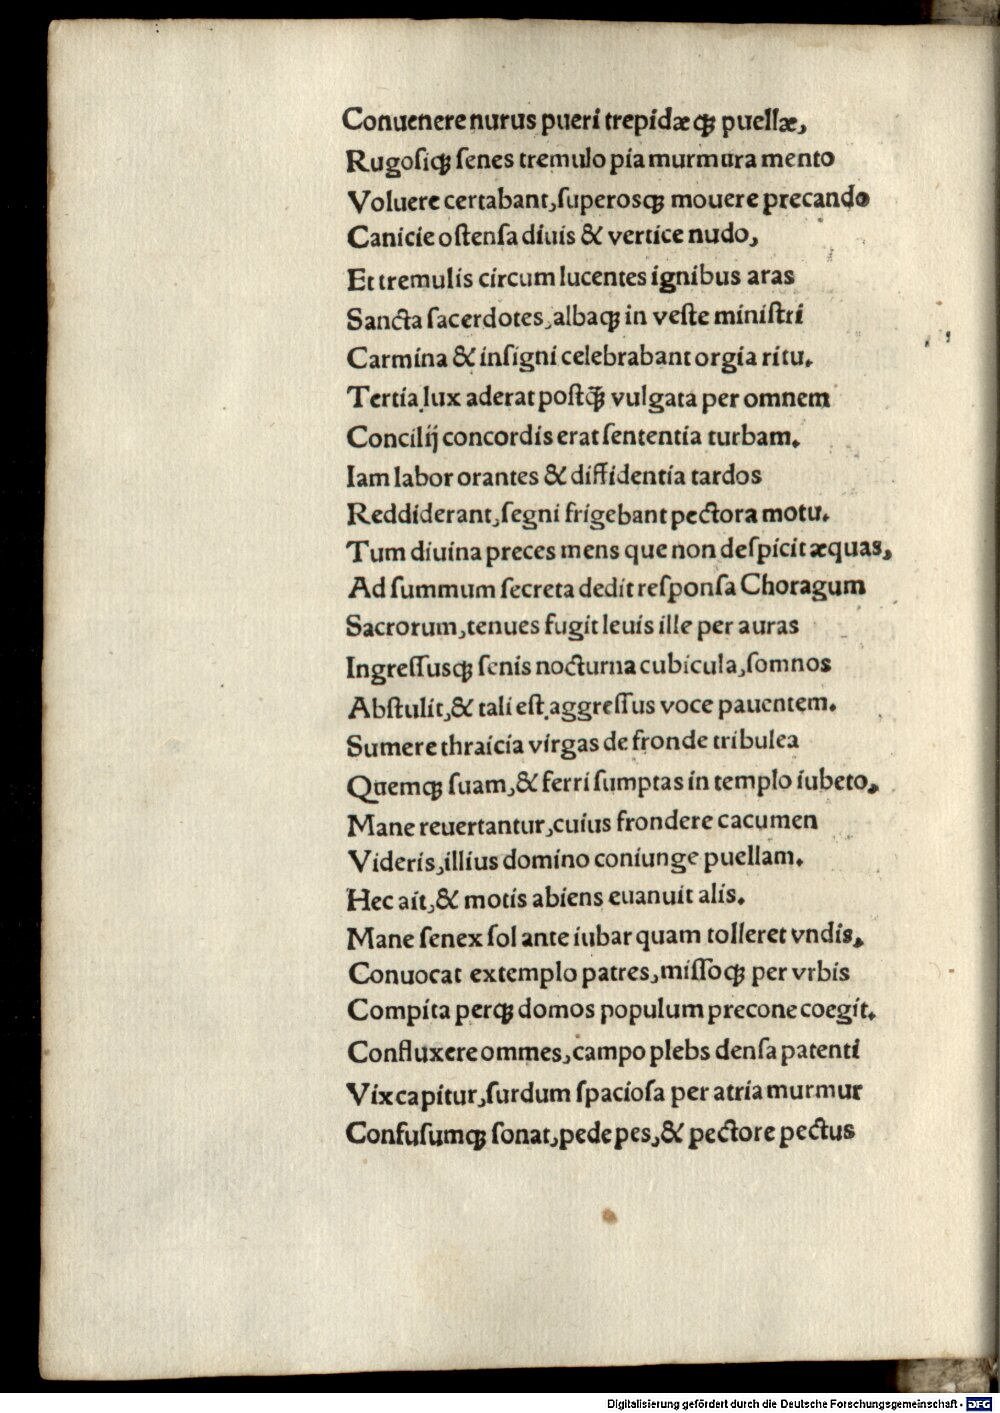 Conuenere nurus pueri trepidæqꝫ puellæ,
Rugosiqꝫ ſenes tremulo pia murmura mento
Voluere certabant, ſuperosqꝫ mouere precando
Canicie oſtenſa diuis & vertice nudo,
Et tremulis circum lucentes ignibus aras
Sancta ſacerdotes, albaqꝫ in veſte miniſtri
Carmina & inſigni celebrabant orgia ritu.
Tertia lux aderat poſtq̄ꝫ vulgata per omnem
Concilij concordis erat ſententia turbam.
Iam labor orantes & diffidentia tardos
Reddiderant, ſegni frigebant pectora motu.
Tum diuina preces mens que non deſpicit æquas,
Ad ſummum ſecreta dedit reſponſa Choragum
Sacrorum, tenues fugit leuis ille per auras
Ingreſſusqꝫ ſenis nocturna cubicula, ſomnos
Abſtulit, & tali eſt aggreſſus voce pauentem.
Sumere thraicia virgas de fronde tribulea
Quemqꝫ ſuam, & ferri ſumptas in templo iubeto,
Mane reuertantur, cuius frondere cacumen
Videris, illius domino coniunge puellam.
Hec ait, & motis abiens euanuit alis.
Mane ſenex ſol ante iubar quam tolleret vndis,
Conuocat extemplo patres, miſſoqꝫ per vrbis
Compita perqꝫ domos populum precone coegit.
Confluxere ommes, campo plebs denſa patenti
Vix capitur, ſurdum ſpacioſa per atria murmur
Confuſumqꝫ ſonat, pede pes, & pectore pectus
Digitalisierung gefördert durch die Deutsche Forschungsgemeinschaft - DFG